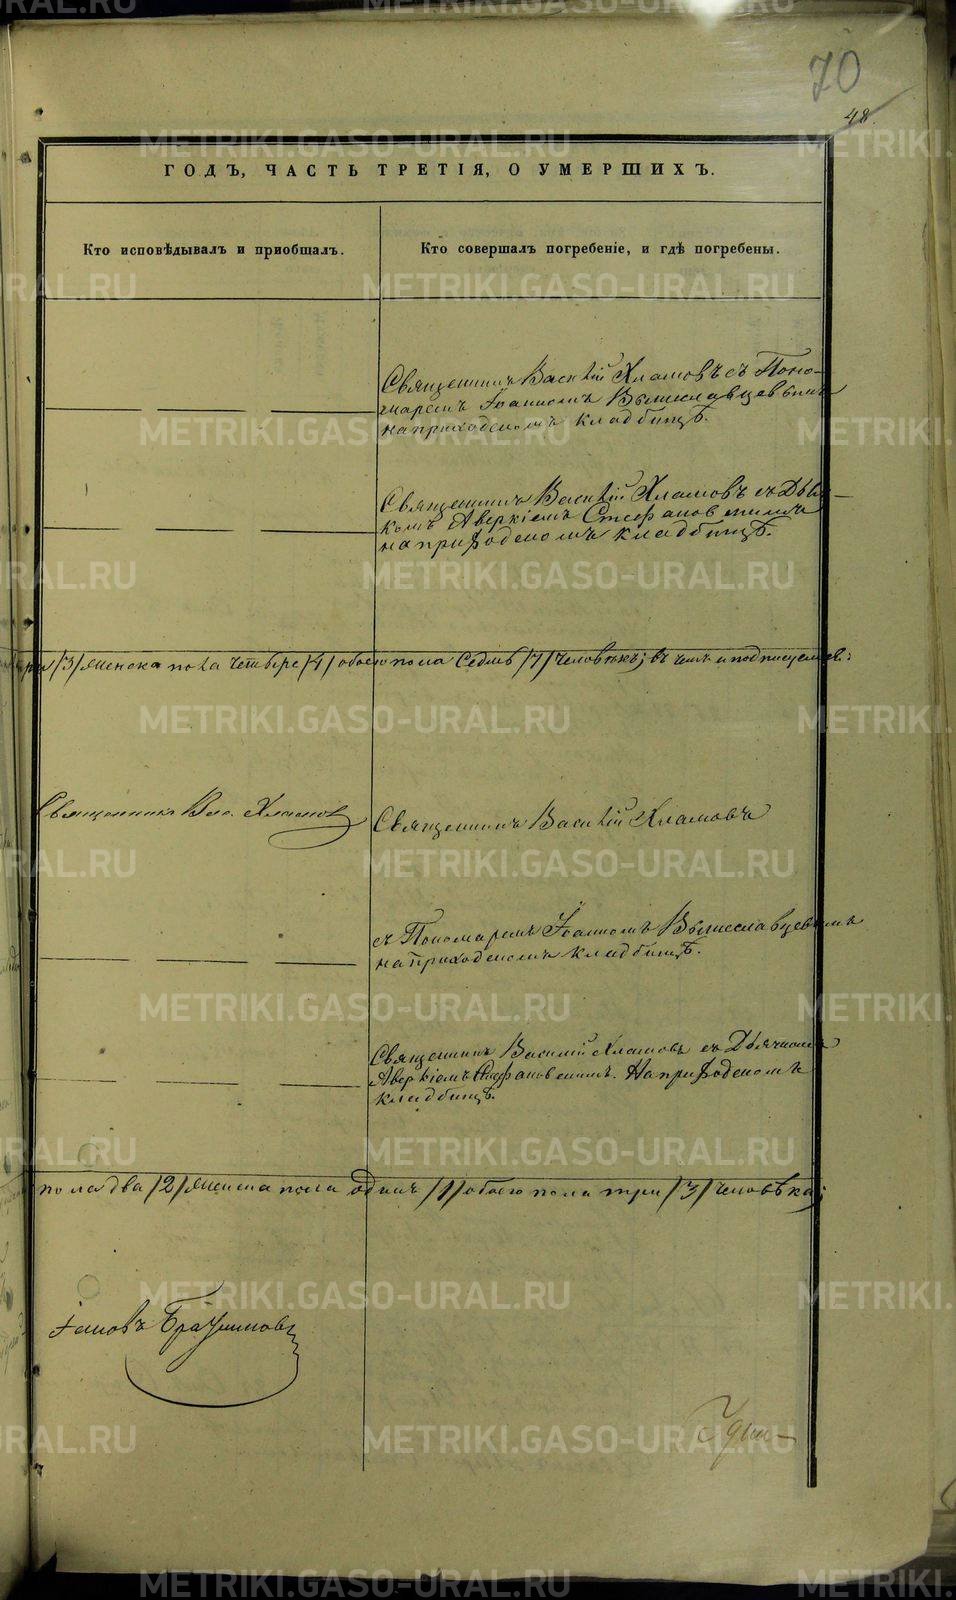 70
48.
ГОДЪ, ЧАСТЬ ТРЕТІЯ, О УМЕРШИХЪ.
Кто исповѣдывалъ и пріобщалъ.
Кто совершалъ погребеніе, и гдѣ погребены.
Священникъ Василій Хламовъ съ Поно-
маремъ Іоанномъ Вышеславцевымъ
на приходскомъ кладбищѣ.
Священникъ Василій Хламовъ съ Дья-
комъ Аверкіемъ Стефановскимъ
на приходскомъ кладбищѣ.
три /3/ женска пола четыре /4/ обоего пола Седмь /7/ человѣкъ; въ чемъ и подписуемся:
Священникъ Вас. Хламовъ
Священникъ Василій Хламовъ
съ Пономаремъ Іоанномъ Вышеславцевымъ
на приходскомъ кладбищѣ.
Священникъ Василій Хламовъ съ Дьячкомъ
Аверкіемъ Стефановскимъ. На приходскомъ
кладбищѣ.
пола два /2/ женска пола одинъ /1/ обоего пола три /3/ человѣка;
METRIKI.GASO-URAL.RU